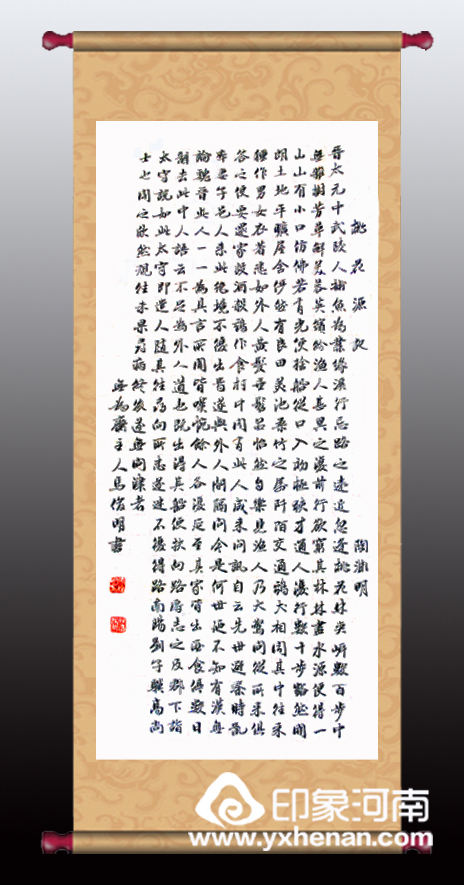 桃花源記
陶淵明
晉太元中武陵人捕魚為業緣溪行忘路之遠近忽逢桃花林夾岸數百步中
無雜樹芳草鮮美落英繽紛漁人甚異之復前行欲窮其林林盡水源便得一
山山有小口彷彿若有光便捨船從口入初極狹才通人復行數十步豁然開
朗土地平曠屋舍儼然有良田美池桑竹之屬阡陌交通鷄犬相聞其中往来
種作男女衣著悉如外人黃髮垂髫並怡然自樂見漁人乃大驚問從所来俱
答之便要還家設酒殺鷄作食村中聞有此人咸来問訊自云先世避秦時亂
率妻子邑人来此絕境不復出焉遂與外人間隔問今是何世迺不知有漢無
論魏晉此人一一為具言所聞皆嘆惋餘人各復延至其家皆出酒食停數日
辭去此中人語云不足為外人道也既出得其船便扶向路處志之及郡下詣
太守說如此太守即遣人隨其往尋向所志遂迷不復得路南陽劉子驥高尚
士也聞之欣然規往未果尋病終後遂無問津者
無為齋主人馬俊明書
印象河南
www.yxhenan.com